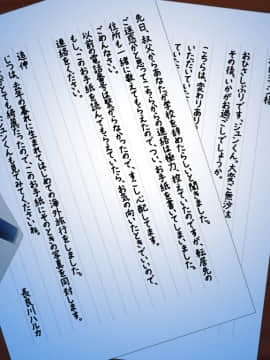 様
おひさしぶりです、ジュンくん。大変ご無沙汰
その後、いかがお過ごしでしょうか。
こちらは、変わりあり
いただいていま
先日、叔父からあなたが学校を辞めたらしいと聞きました。
ご迷惑かと思ってこちらからの連絡は極力、控えていたのですが、転居先の
住所も一緒に教えてもらえたので、つい、お手紙を書いてしまいました。
ごめんなさい。
以前の電話番号も繋がらなかったので、すこし心配してます。
もし、このお手紙を読んでもらえていたら、お気の向いたときでいいので、
連絡をください。
追伸
じつは、去年の暮れに生まれてはじめての海外旅行をしました。
とても綺麗だったので、このお手紙にそのときの写真を同封します。
ジュンくんも見てみてくださいね。
長良川ハルカ